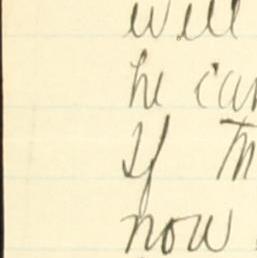 will
he can
If
now